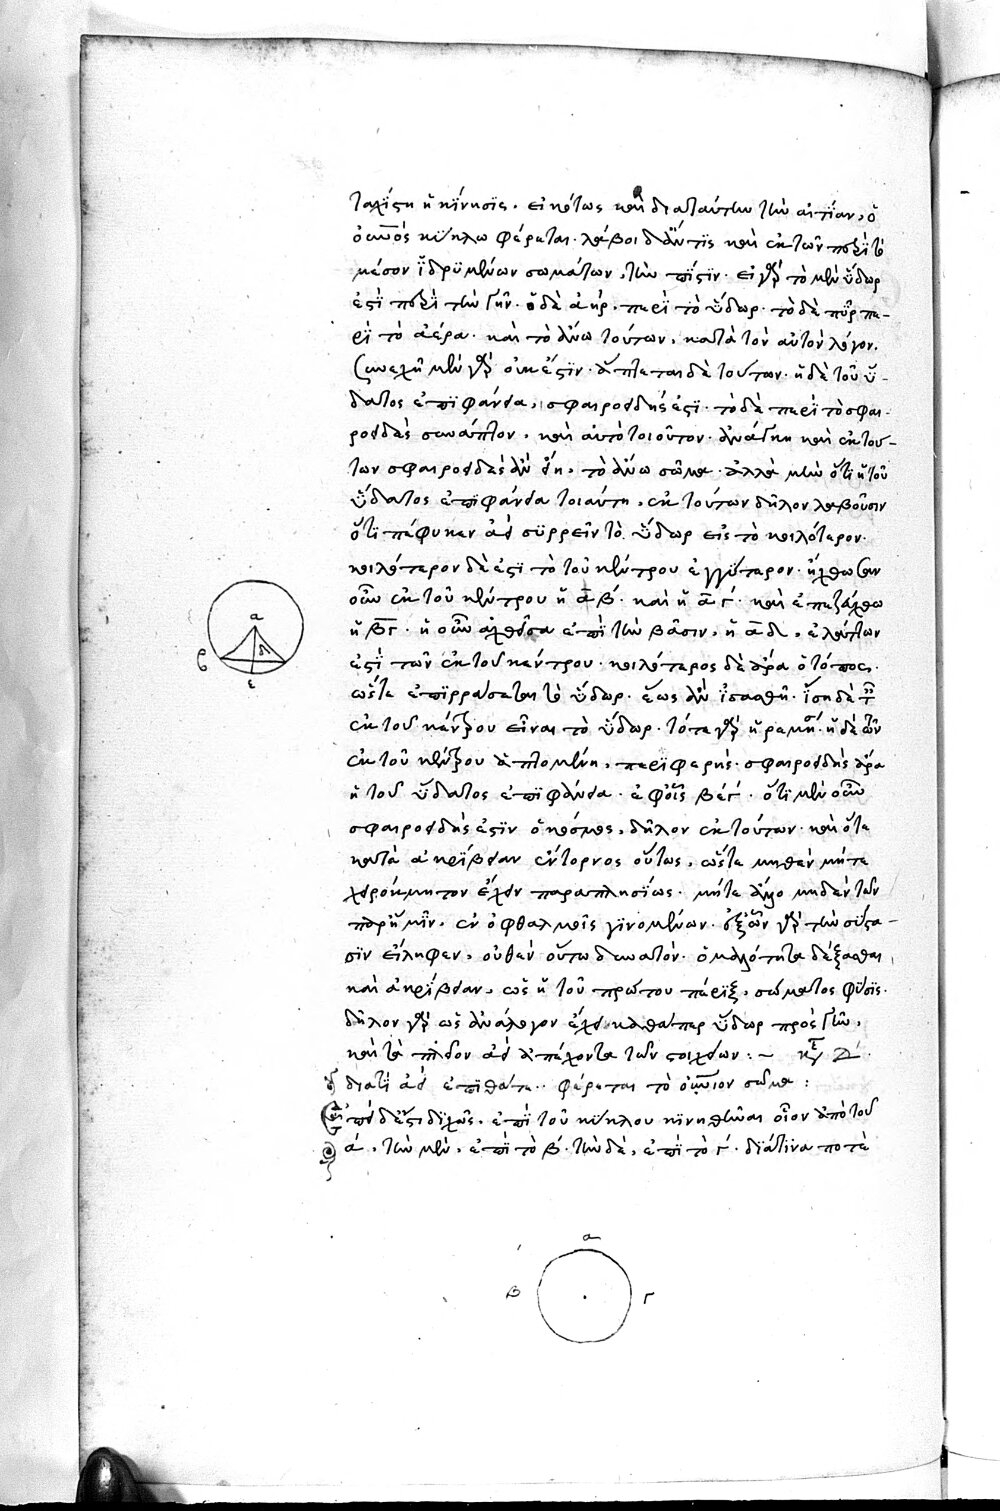 ταχίστη ἡ κίνησις. εἰκότως καὶ διὰ ταύτην τὴν αἰτίαν, ὁ
οὐνὸς κύκλω φέρεται. λάβοι δἄν τις καὶ ἐκ τῶν περὶ τὸ
μέσον ἱδρυμένων σωμάτων, τὴν πίστιν. εἰ γὰρ τὸ μὲν ὕδωρ
ἐστὶ περὶ τὴν γῆν. ὁ δὲ ἀὴρ, περὶ τὸ ὕδωρ. τὸ δὲ πῦρ πε-
ρὶ τὸ ἀέρα. καὶ τὸ ἄνω τούτων, κατὰ τὸν αὐτὸν λόγον.
συνεχῆ μὲν γὰρ οὐκ ἔστιν. ἅπτεται δὲ τούτων. ἡ δὲ τοῦ ὕ-
δατος ἐπιφάνεια, σφαιροειδής ἐστι. τὸ δὲ περὶ τὸ σφαι-
ροειδὲς συνάπτον, καὶ αὐτὸ τοιοῦτον. ἀνάγκη καὶ ἐκ τού-
των σφαιροειδὲς ἂν εἴη, τὸ ἄνω σῶμα. ἀλλὰ μὴν ὅτι ἡ τοῦ
ὕδατος ἐπιφάνεια τοιαύτη, ἐκ τούτων δῆλον λαβοῦσιν
ὅτι πέφυκεν ἀεὶ συρρεῖν τὸ ὕδωρ εἰς τὸ κοιλότερον.
κοιλότερον δέ ἐστι τὸ τοῦ κέντρου ἐγγύτερον. ἤχθωσαν
οὖν ἐκ τοῦ κέντρου ἡ α β. καὶ ἡ α γ. καὶ ἐπεζεύχθω
ἡ βγ. ἡ οὖν ἀχθεῖσα ἐπὶ τὴν βάσιν, ἡ α δ, ἐλάττων
ἐστὶ τῶν ἐκ τοῦ κέντρου. κοιλότερος δὲ ἄρα ὁ τόπος.
ὥστε ἐπιρρεύσεται τὸ ὕδωρ. ἕως ἂν ἰσασθῆ. ἴση δὲ τ
ἐκ τοῦ κέντρου εἶναι τὸ ὕδωρ. τότε γὰρ ἠρεμήσει. ἡ δὲ τῶν
ἐκ τοῦ κέντρου ἁπτομένη, περιφερής. σφαιροειδὴς ἄρα
ἡ τοῦ ὕδατος ἐπιφάνεια. ἐφ οἷς βεγ. ὅτι μὲν οὖν
σφαιροειδής ἐστιν ὁ κόσμος, δῆλον ἐκ τούτων. καὶ ὅτε
κατὰ ἀκρίβειαν ἔντορνος οὕτως, ὥστε μηθὲν μήτε
χειρόκμητον ἔχειν παραπλησίως. μήτε ἄλλο μηδὲν τῶν
παρ ἡμῖν, ἐν ὀφθαλμοῖς γινομένων. ἐξ ὧν γὰρ τὴν σύστα-
σιν εἴληφεν, οὐθὲν οὕτω δυνατὸν. ὁμαλότητα δέξασθαι
καὶ ἀκρίβειαν, ὡς ἡ τοῦ πρώτου πέριξ, σώματος φύσις.
δῆλον γὰρ ὡς ἀνάλογον ἔχει καθάπερ ὕδωρ πρὸς γῆν,
καὶ τὰ πλεῖον ἀεὶ ἀπέχοντα τῶν στοιχείων:~ κε Δ
διατί ἀεὶ ἐπὶ θάτε. φέρεται τὸ οὐνιον σῶμα:
Ἐπεὶ δἔστι διχῶς, ἐπὶ τοῦ κύκλου κινηθῆναι οἷον ἀπὸ τοῦ
α, τὴν μὲν, ἐπὶ τὸ β. τὴν δὲ, ἐπὶ τὸ γ. διὰ τίνα ποτὲ
α
β
δ
ε
α
β
γ